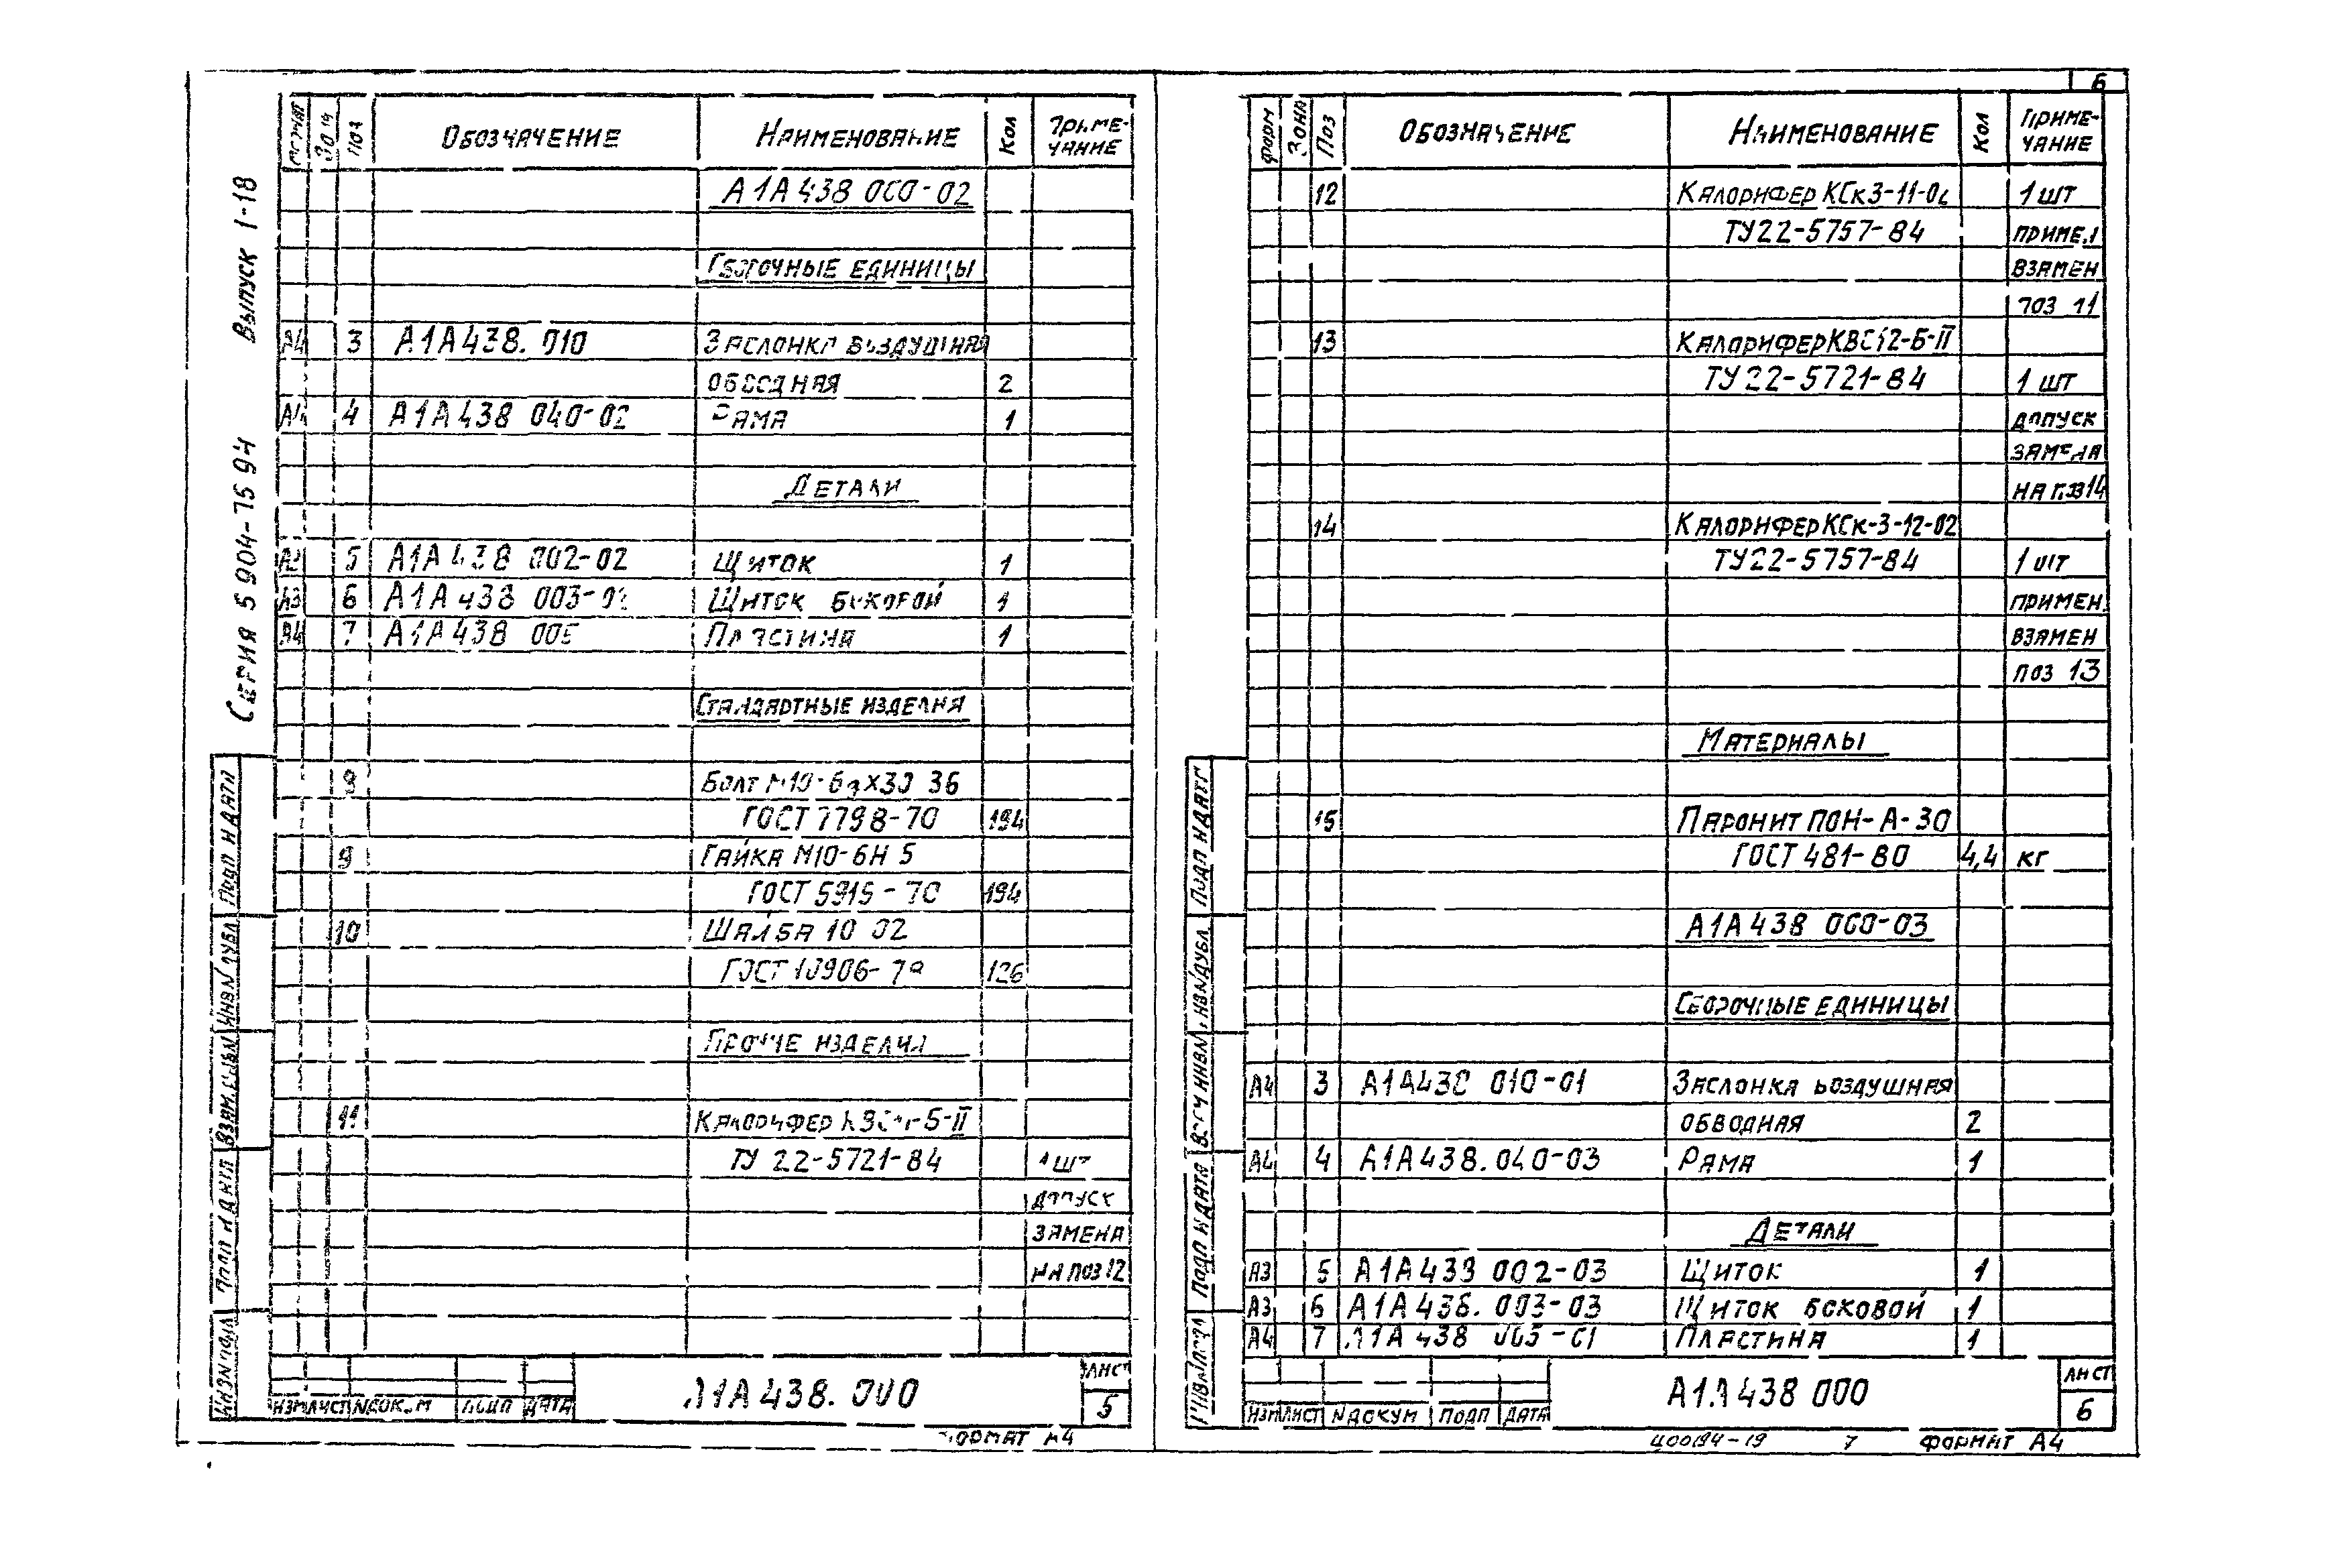 6
Выпуск 1-18
Серия 5 904-75 94
Формат Зона Поз Обозначение Наименование Кол Примечание
А1А438 000-02
Сборочные единицы
А4 3 А1А438. 010 Заслонка воздушная
обводная 2
А4 4 А1А438 040-02 Рама 1
Детали
А3 5 А1А438 002-02 Щиток 1
А3 6 А1А438 003-02 Щиток боковой 1
А4 7 А1А438 005 Пластина 1
Стандартные изделия
8 Болт М10-6gх30 36
ГОСТ 7798-70 194
9 Гайка М10-6Н 5
ГОСТ 5915-70 194
10 Шайба 10 02
ГОСТ 10906-78 126
Прочие изделия
11 Калорифер
ТУ 22-5721-84 1 шт
допуск
замена
на поз 12
Подп и дата
Инв N дубл
Взам. инв N
Подп и дата
Инв N подл
Изм Лист N докум Подп Дата
А1А438. 000
Лист
5
Формат А4
Форм Зона Поз Обозначение Наименование Кол Примечание
12 Калорифер КСк3-11-02 1 шт
ТУ22-5757-84 примен
взамен
поз 11
13 Калорифер КВС12-Б-II
ТУ22-5721-84 1 шт
допуск
замена
на поз 14
14 Калорифер КСк-3-12-02
ТУ22-5757-84 1 шт
примен.
взамен
поз 13
Материалы
15 Паронит ПОН-А-30
ГОСТ 481-80 4,4 кг
А1А438 000-03
Сборочные единицы
А4 3 А1А438 010-01 Заслонка воздушная
обводная 2
А4 4 А1А438.040-03 Рама 1
Детали
А3 5 А1А438 002-03 Щиток 1
А3 6 А1А438. 003-03 Щиток боковой 1
А4 7 А1А 438 005-01 Пластина 1
Подп и дата
Инв N дубл
Взам инв N
Подп и дата
Инв N подл
Изм Лист N докум Подп Дата
А1А438 000
Лист
6
Ц00194-19 7 Формат А4